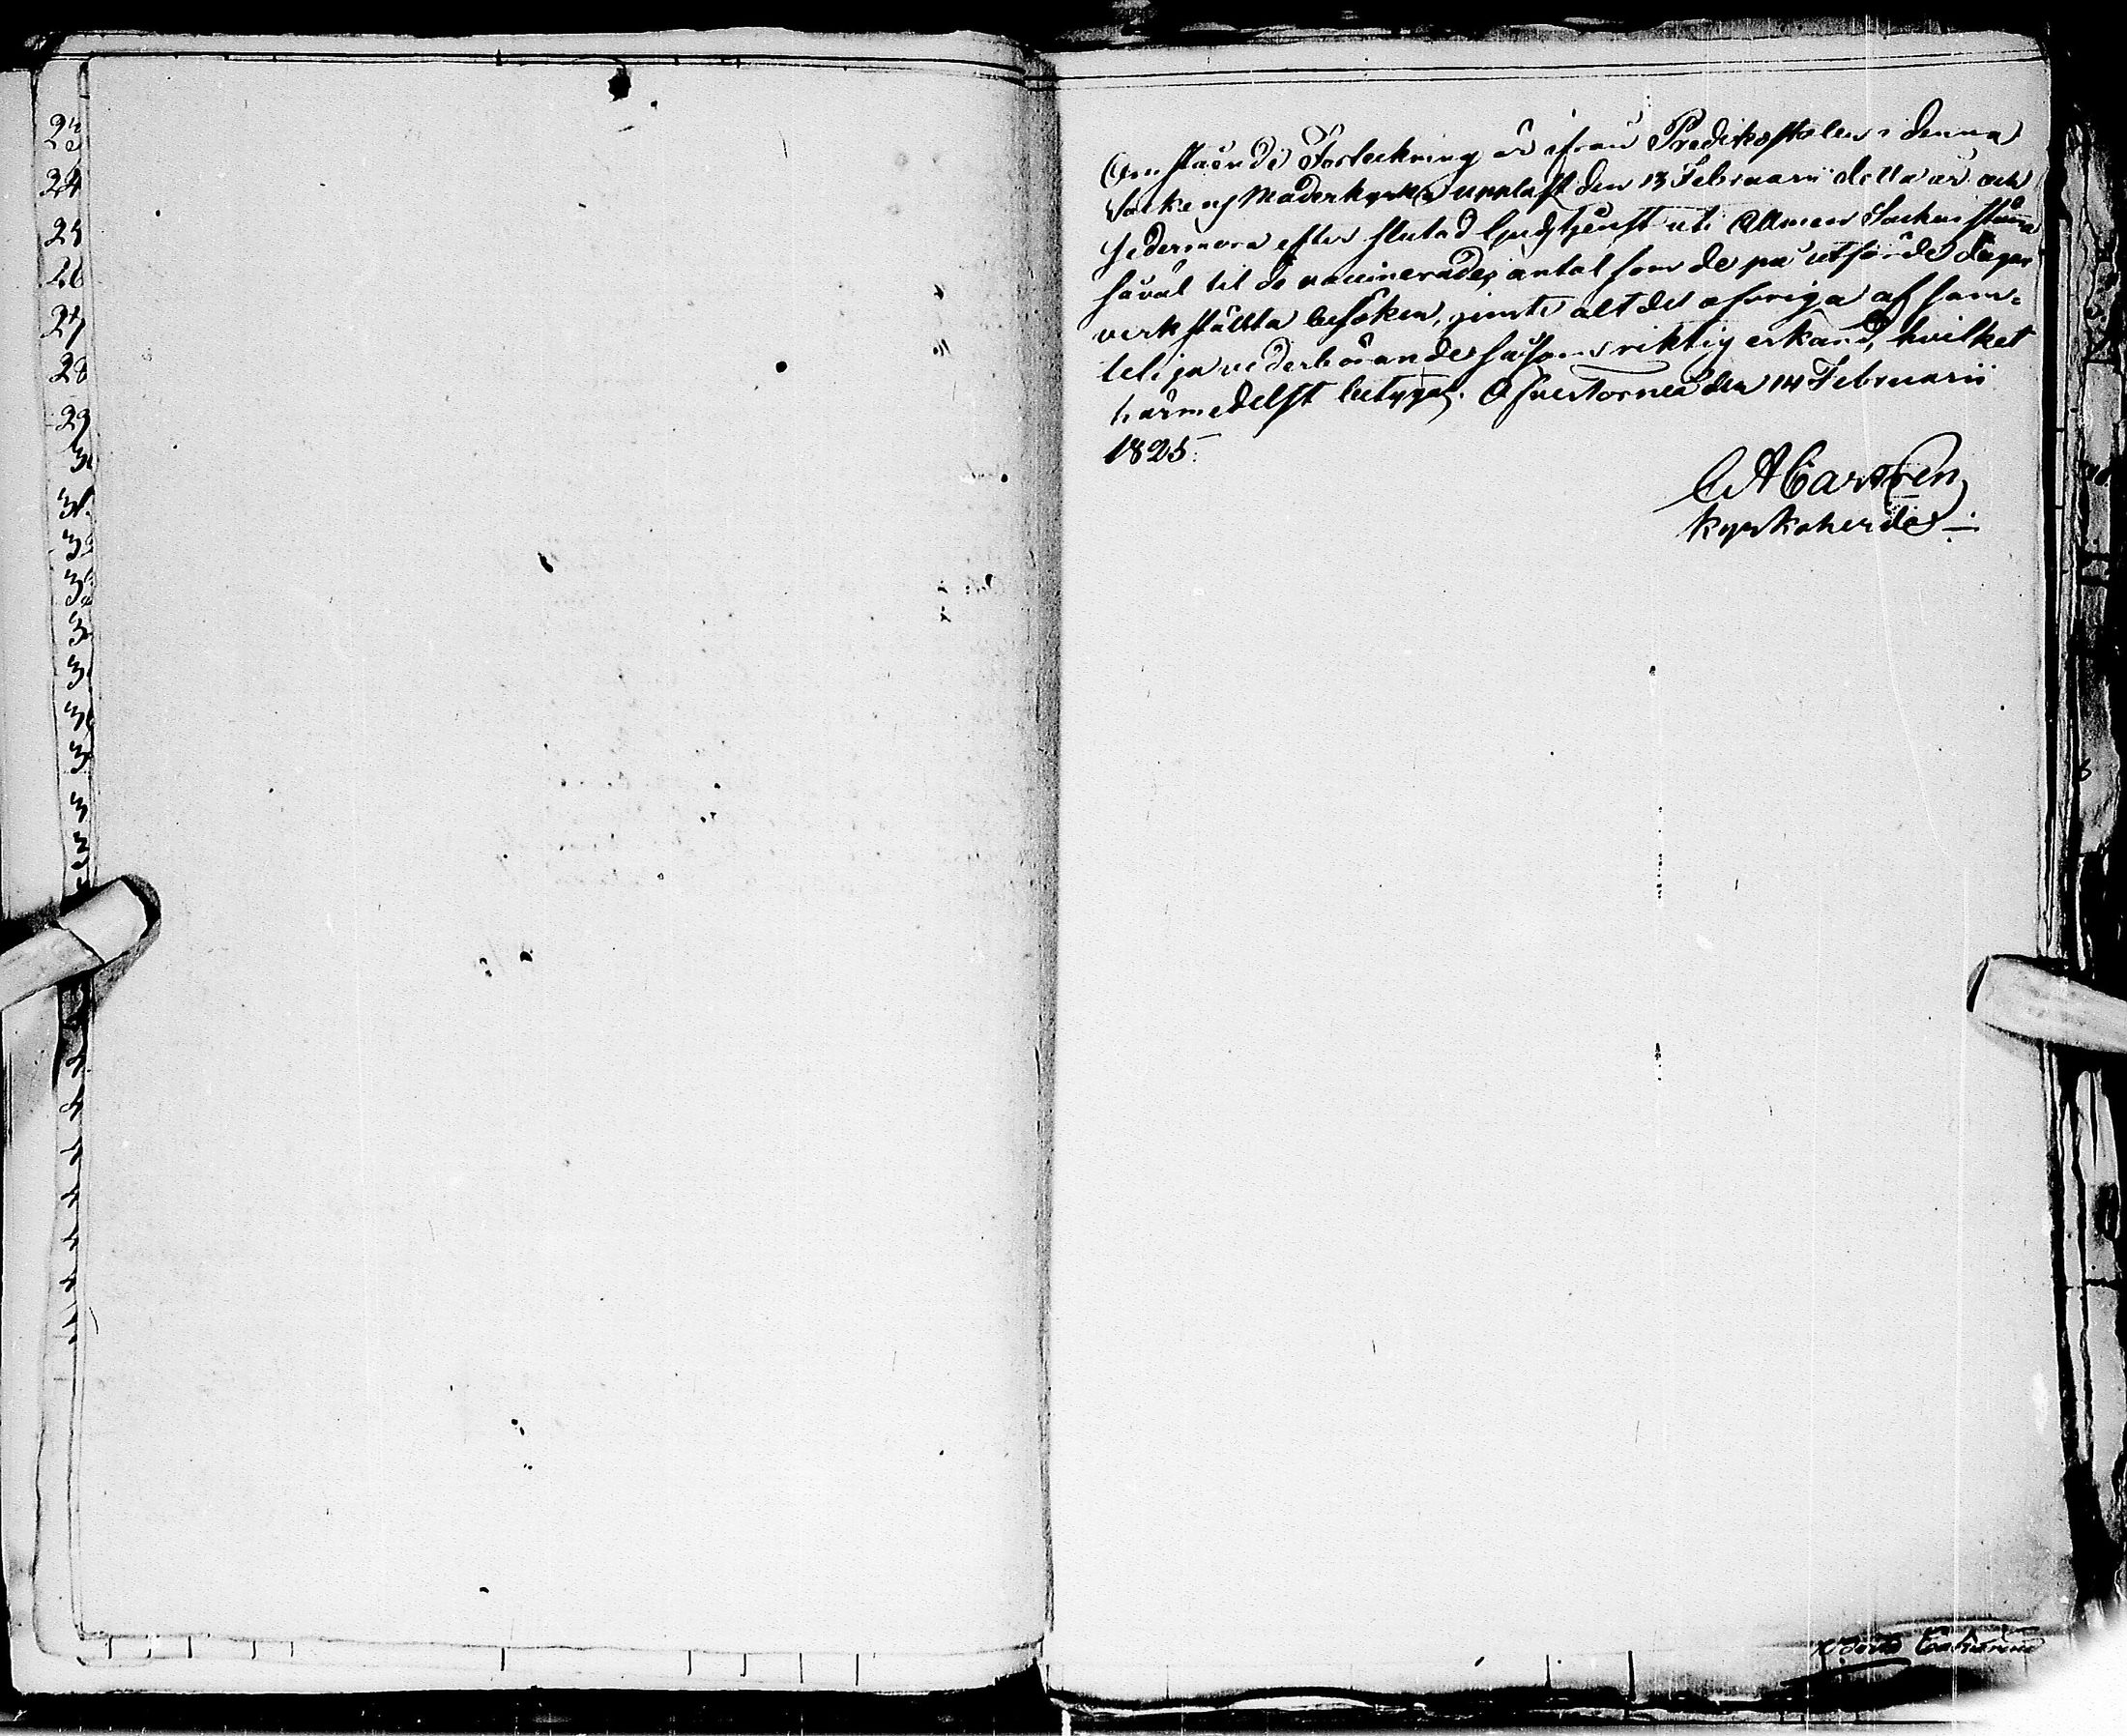 23
24
25
26
27
28
29
30
31.
Omstående Förteckning är ifrån Predikostolen i denna
Sockens Moderkyrka uppläst den 13 Februarii detta år och
sedermera efter slutad Gudstjenst uti Allmän Sockenstämma
såväl til de vaccinerades antal som de på utsände dagar
verkstälda besöken, jemte alt det öfriga af sam-
telige vederbörande såsom riktig erkänd, hvilket
härmedelst betygas. Öfvertorneå den 14 Februarii
1825.
C A Castrén
Kyrkoherde